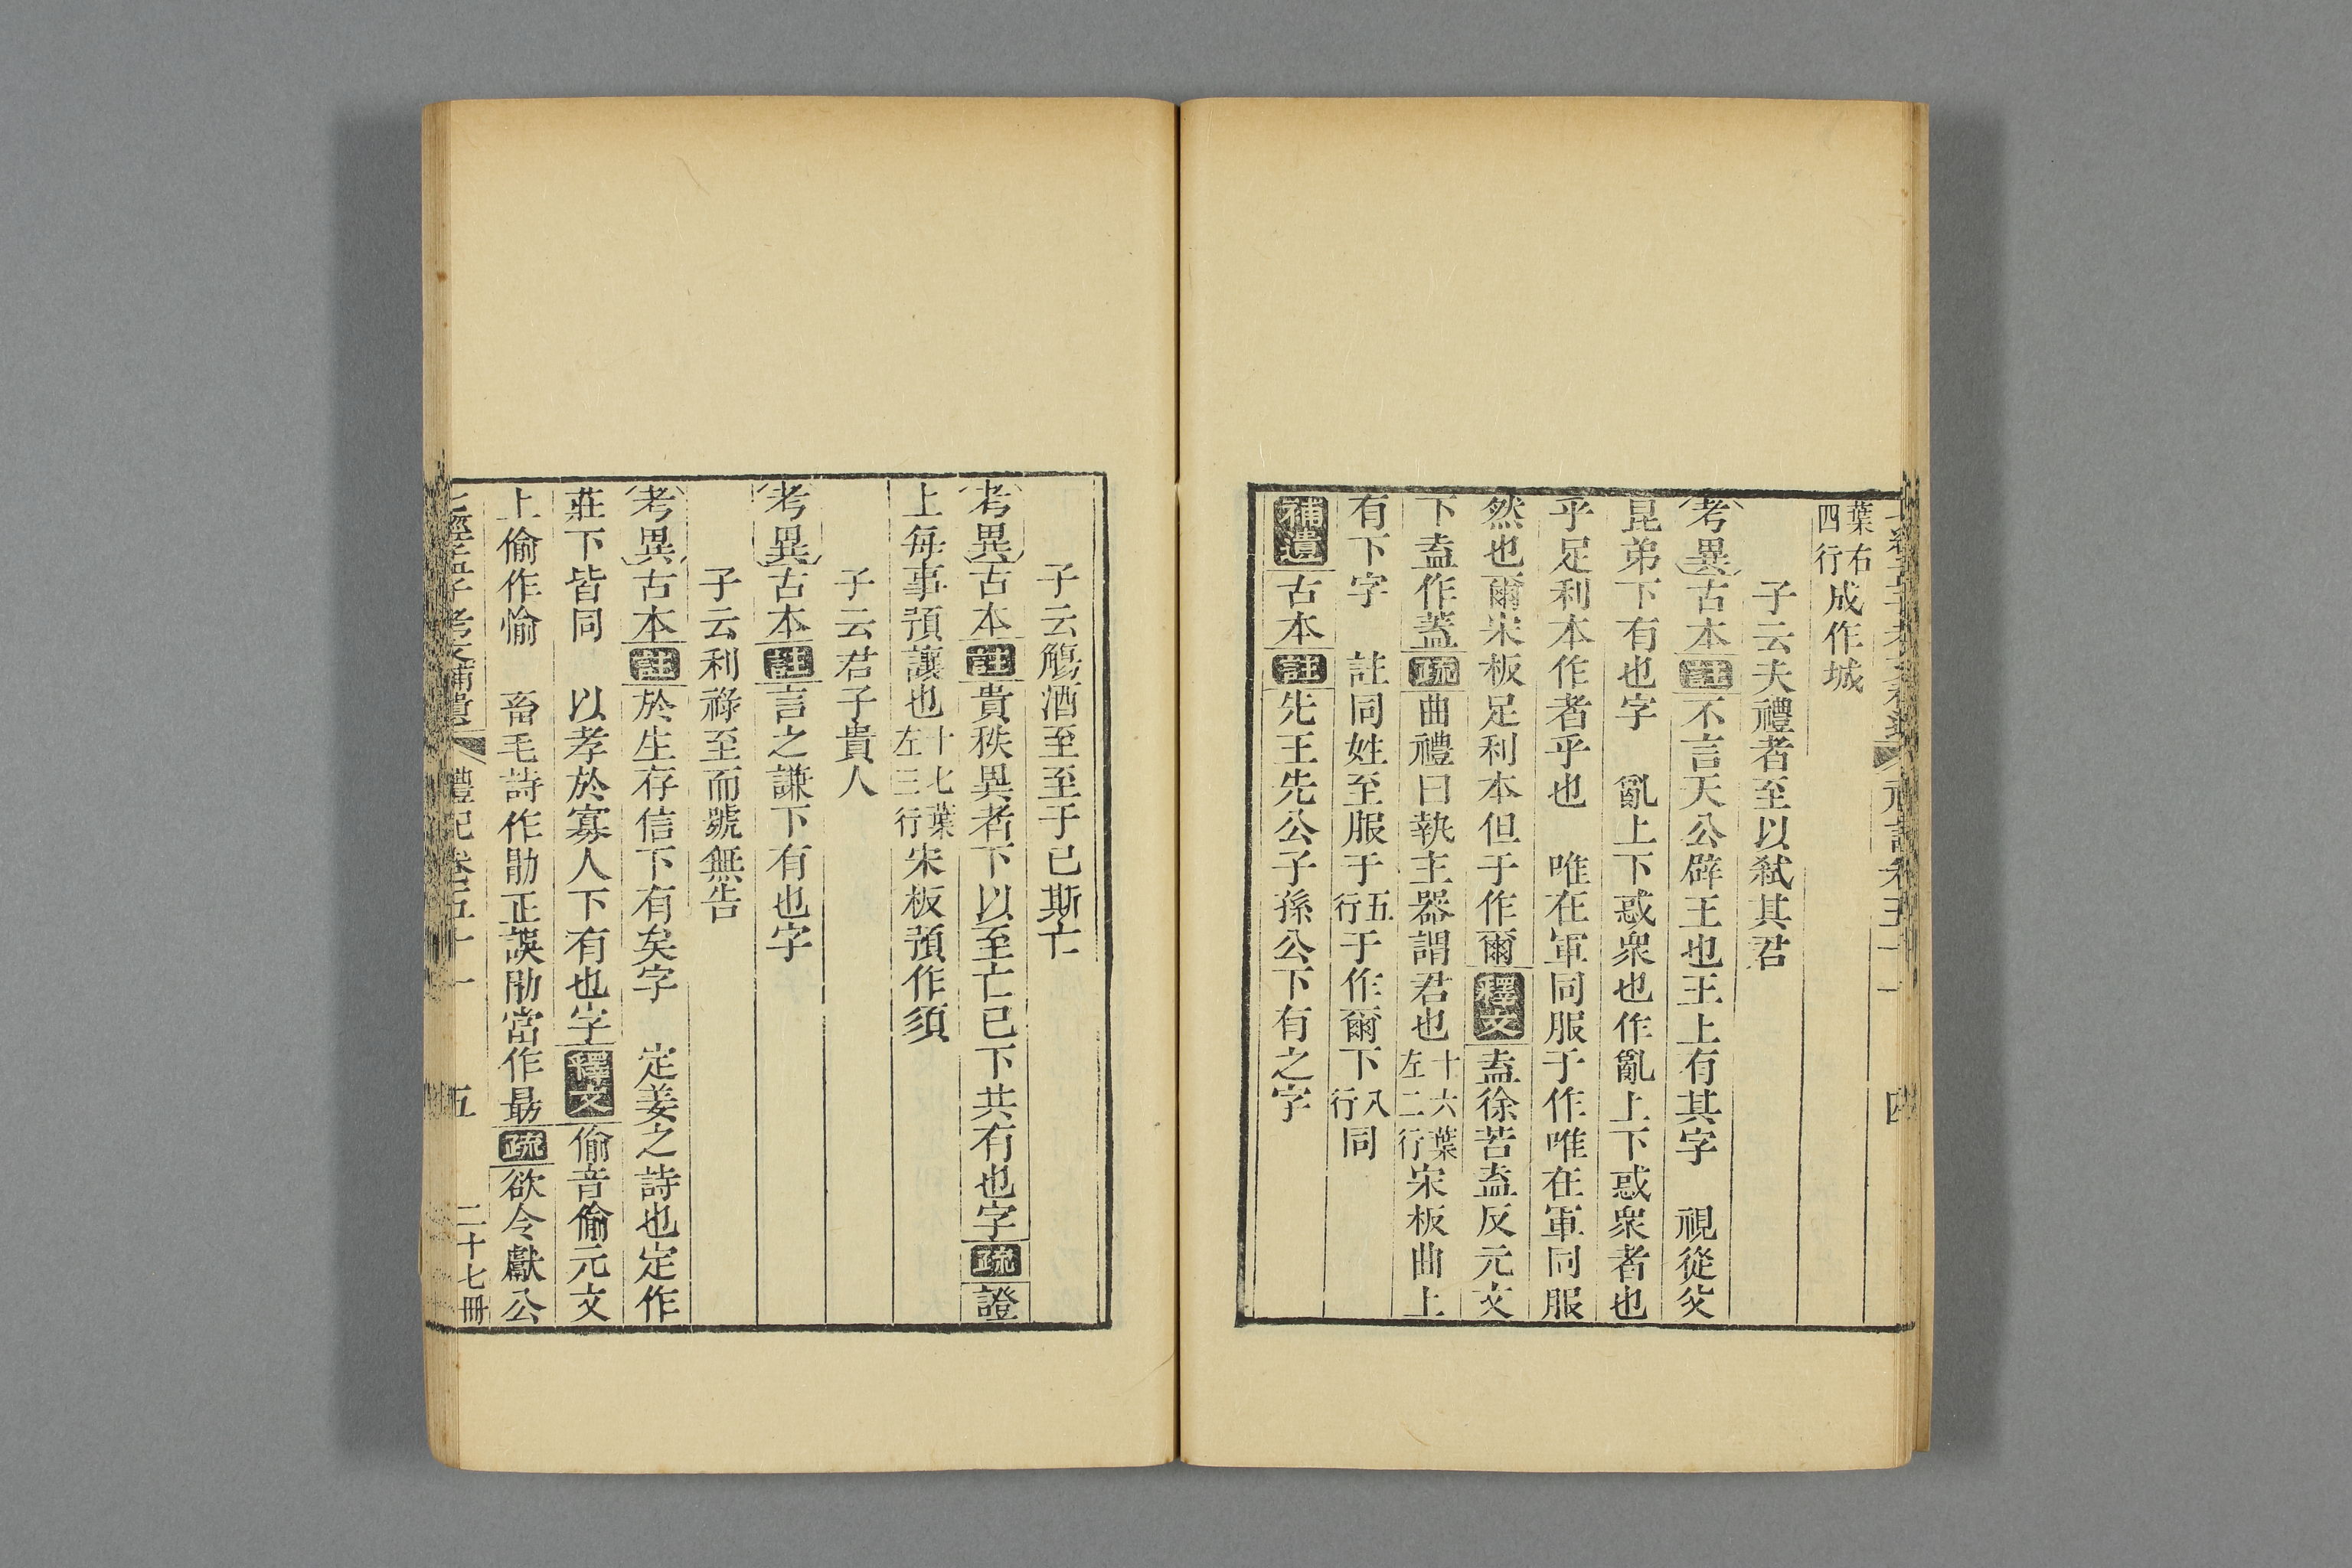 葉右四行成作城
子云夫禮者至以弑其君
考異古本註不言天公辟王也王上有其字　視從父
昆弟下有也字　亂上下惑衆也作亂上下惑衆者也
乎足利本作者乎也　唯在軍同服于作唯在軍同服
然也爾宋板足利本但于作爾釋文盍徐苦盍反元文
下盍作蓋疏曲禮曰執主器謂君也十六葉左二行宋板曲上
有下字　註同姓至服于五行于作爾下八行同
補遺古本註先王先公子孫公下有之字
子云觴酒至至于已斯亡
考異古本註貴秩異者下以至亡已下共有也字疏證
上每事預讓也十七葉左三行宋板預作須
子云君子貴人
考異古本註言之謙下有也字
子云利祿至而號無告
考異古本註於生存信下有矣字　定姜之詩也定作
莊下皆同　以孝於寡人下有也字釋文偷音偷元文
上偷作愉　畜毛詩作勖正誤勖當作最疏欲令獻公
七經孟子考文補遺　禮記卷五十一　五　二十七冊